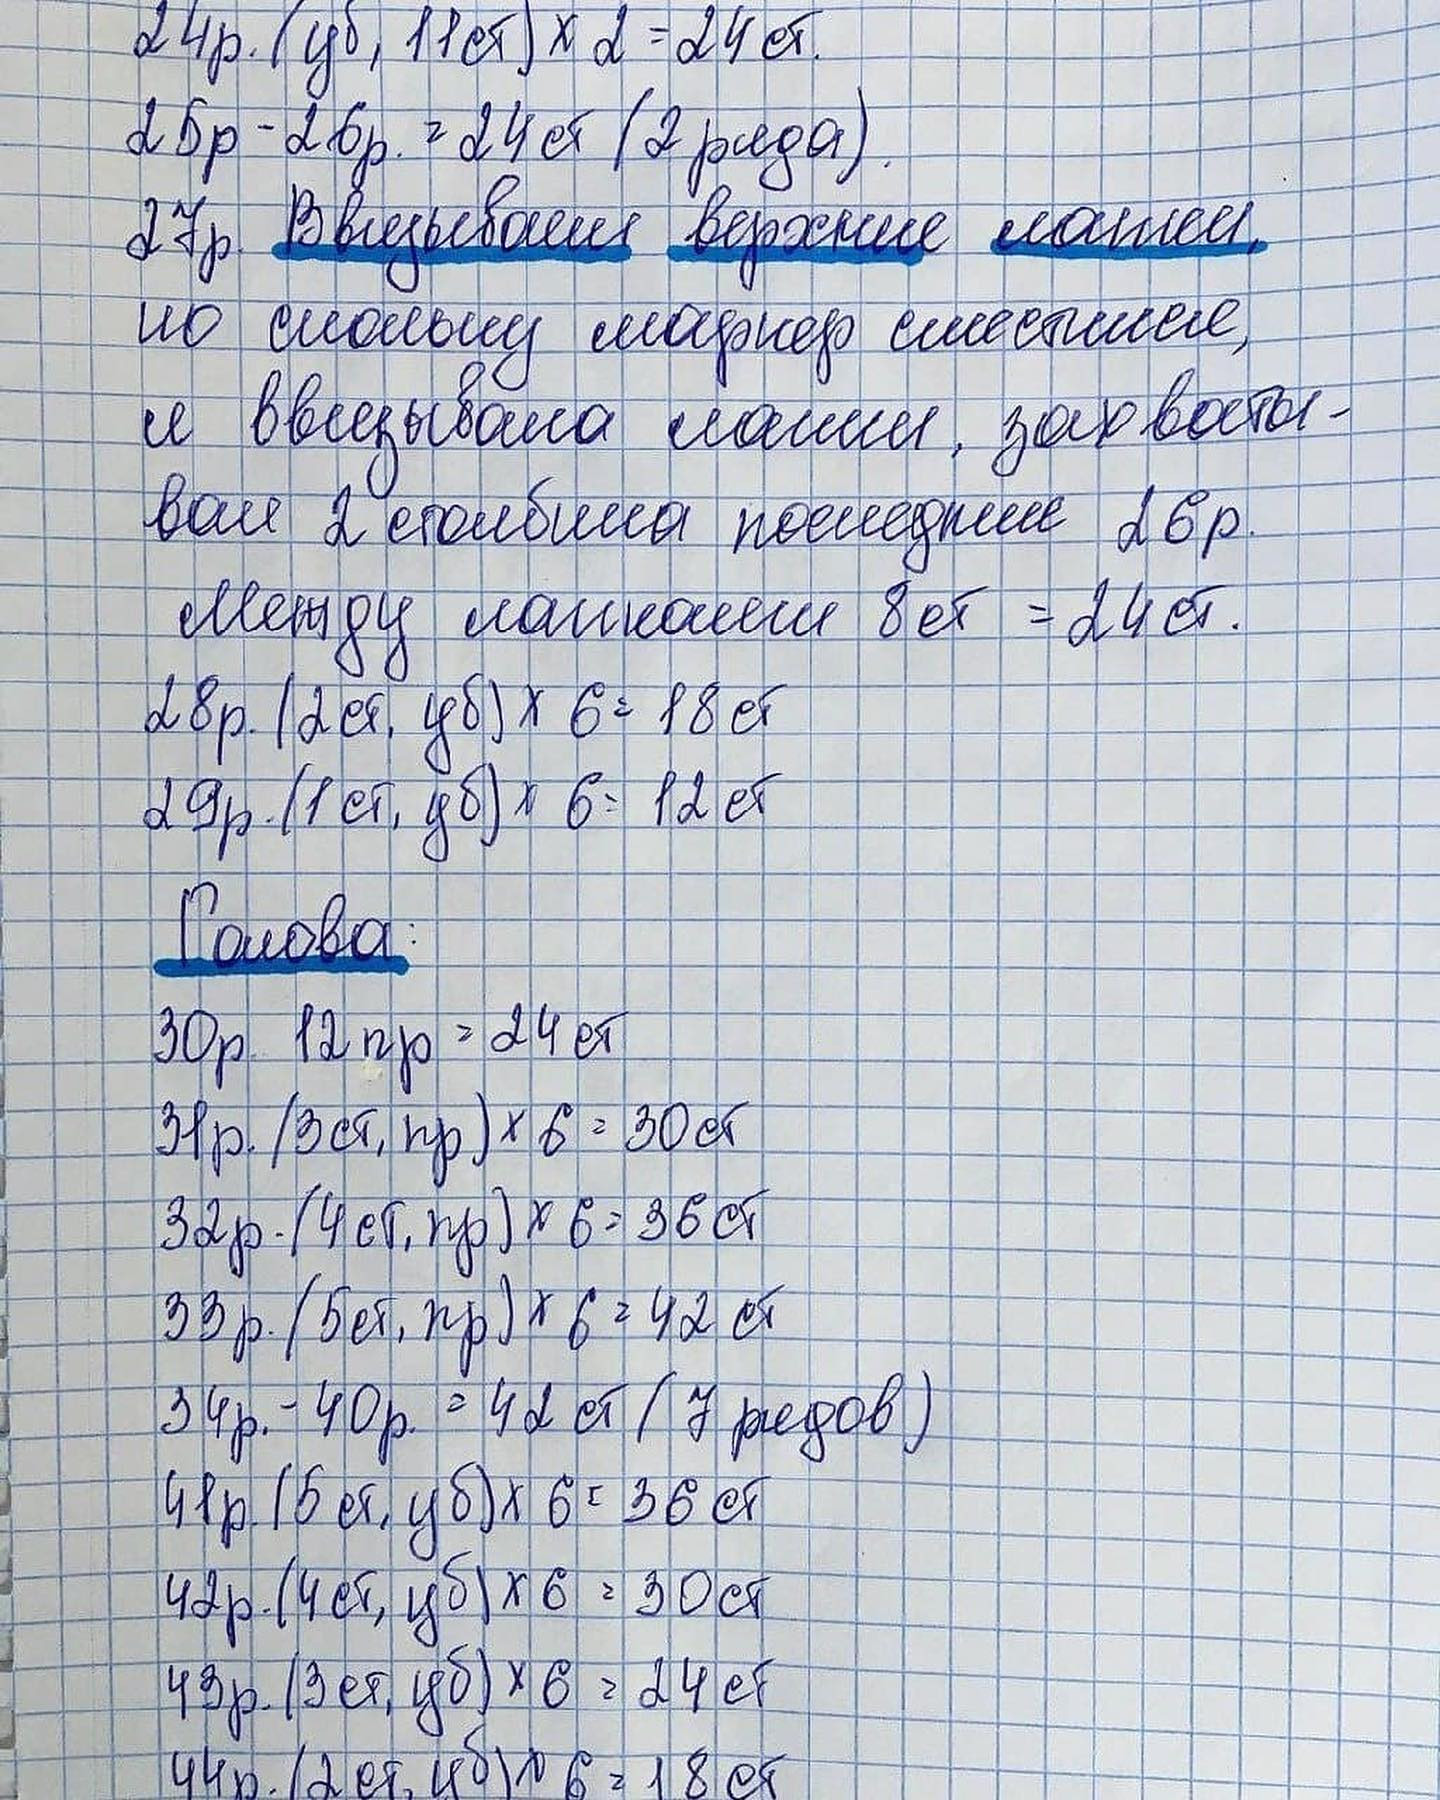 24р. (уб, 11ст) х 2 = 24 ст.
25р - 26р. = 24 ст (2 ряда).
27р. Ввязываем верхние лапки,
но скольку маркер сместился,
я ввязывала лапки, захваты-
вая 2 столбика последние 26р.
Между лапками 8ст = 24ст.
28р. (2ст, уб) х 6 = 18 ст
29р. (1ст, уб) х 6 = 12 ст
Голова:
30р. 12 пр = 24 ст
31р. (3ст, пр) х 6 = 30 ст
32р. (4ст, пр) х 6 = 36 ст
33р. (5ст, пр) х 6 = 42 ст
34р. - 40р. = 42 ст (7 рядов)
41р. (5 ст, уб) х 6 = 36 ст
42р. (4ст, уб) х 6 = 30 ст
43р. (3ст, уб) х 6 = 24 ст
44р. (2ст, уб) х 6 = 18 ст